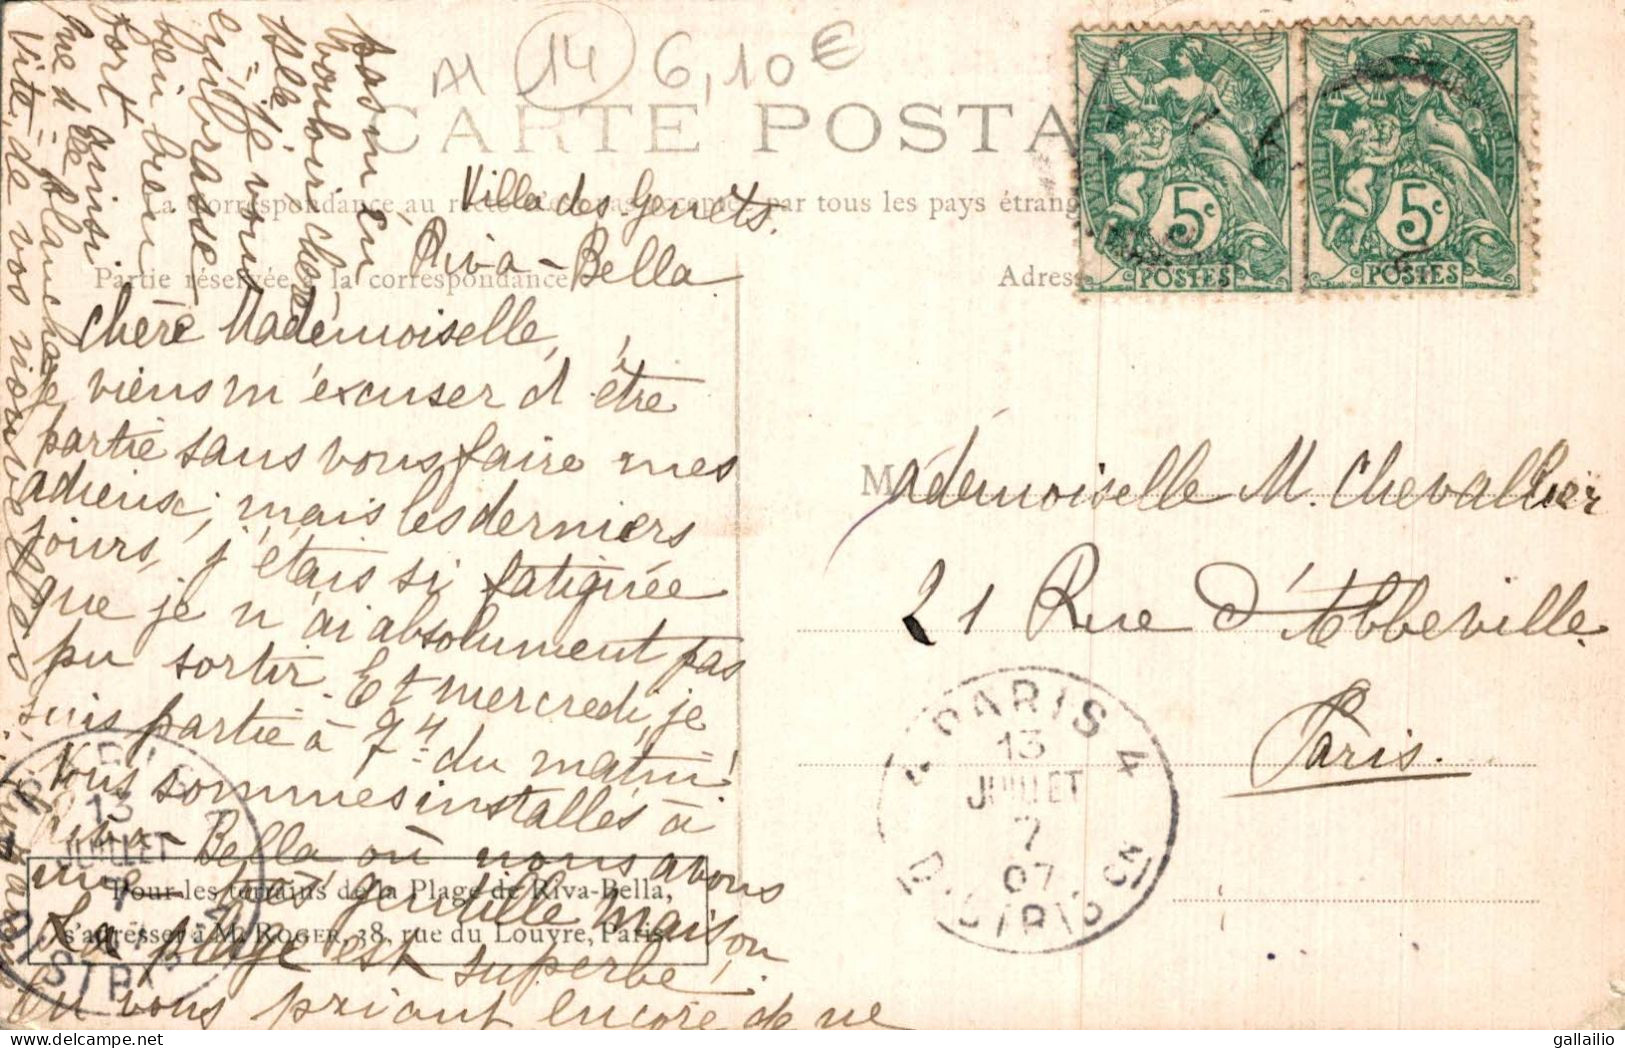 M 14 6,10€
CARTE POSTA
La Correspondance au recto n'est pas acceptée par tous les pays étrang
Partie réservée à la correspondance
Adress
5c
POSTES
5c
POSTES
Villa des Genets.
Riva-Bella
Chère Mademoiselle,
Je viens m'excuser d'être
partie sans vous faire mes
adieux, mais les derniers
jours, j'étais si fatiguée
que je n'ai absolument pas
pu sortir. Et mercredi, je
suis partie à 7h du matin!
Nous sommes installés à
Riva-Bella où nous avons
une très gentille maison,
La plage est superbe.
En vous priant encore de ne
pas m'en
vouloir chère
Mlle, je vous
embrasse
bien
fort, ainsi
que Mlle Blanche
Vite, de vos nouvelles
Pour les terrains de la Plage de Riva-Bella,
s'adresser à M. ROGER, 38, rue du Louvre, Paris.
Mademoiselle M. Chevallier
21 Rue d'Abbeville
Paris.
PARIS 4
13
JUILLET
7
07
DISTRIBION
13
JUILLET
7
gallailio